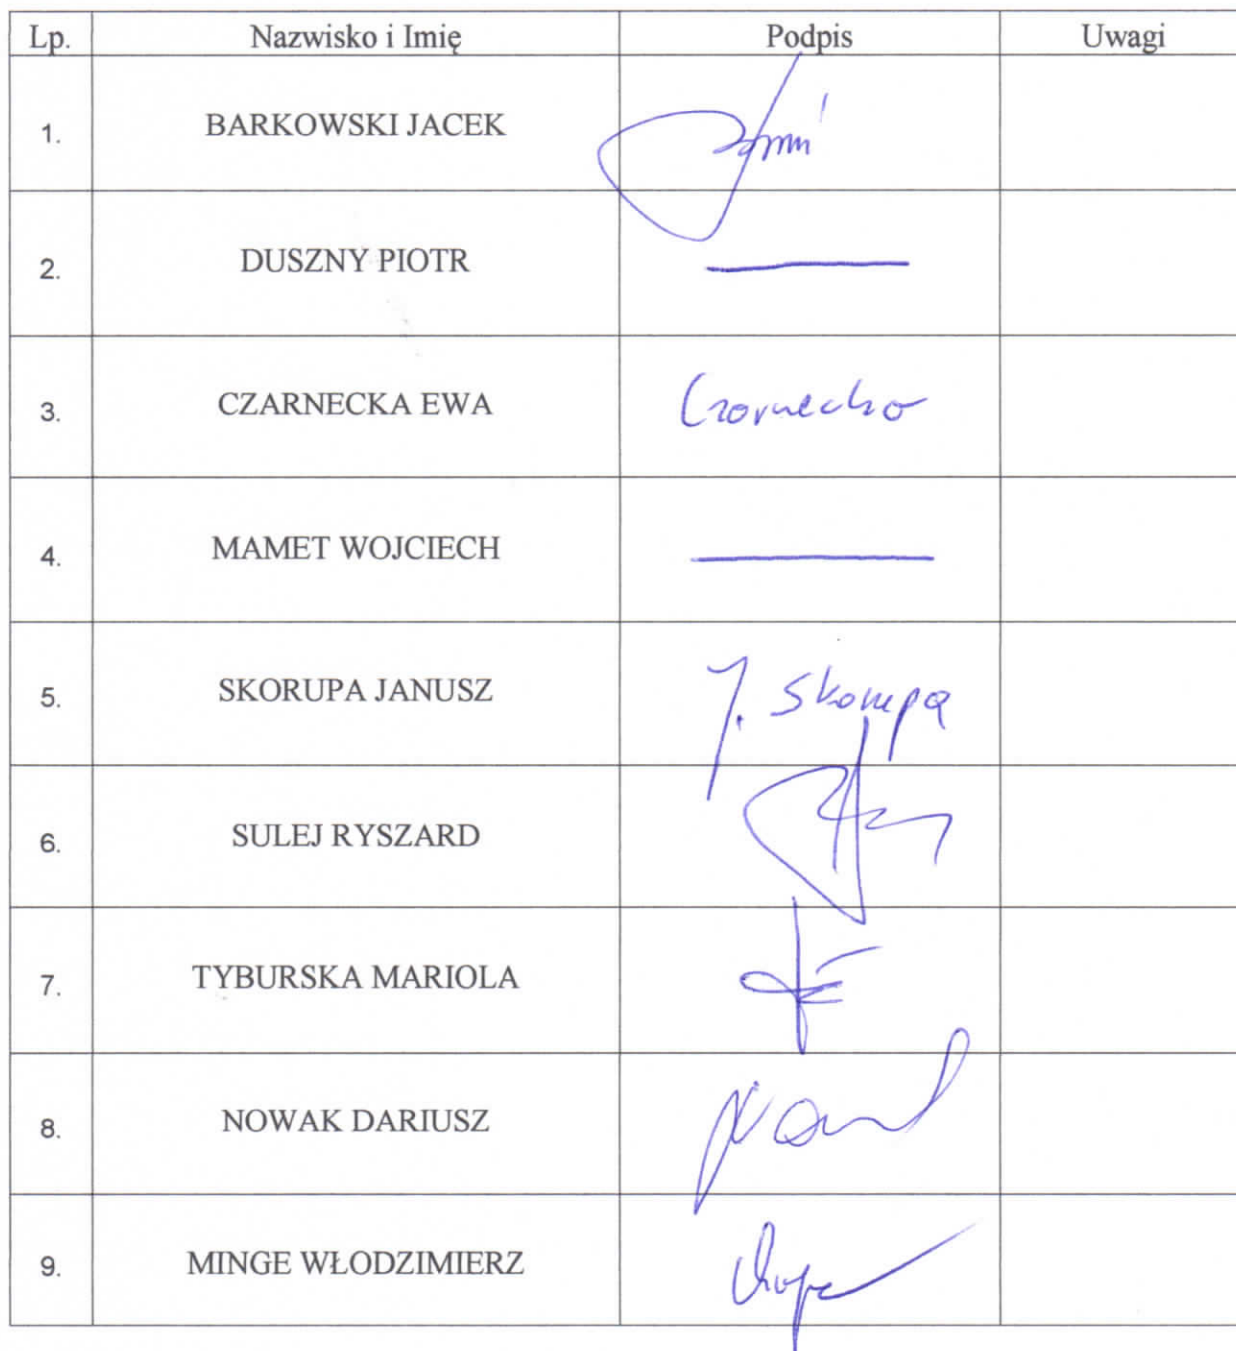 Lp. Nazwisko i Imię Podpis Uwagi
1. BARKOWSKI JACEK
2. DUSZNY PIOTR
3. CZARNECKA EWA Czarnecka
4. MAMET WOJCIECH
5. SKORUPA JANUSZ J. Skorupa
6. SULEJ RYSZARD
7. TYBURSKA MARIOLA
8. NOWAK DARIUSZ
9. MINGE WŁODZIMIERZ